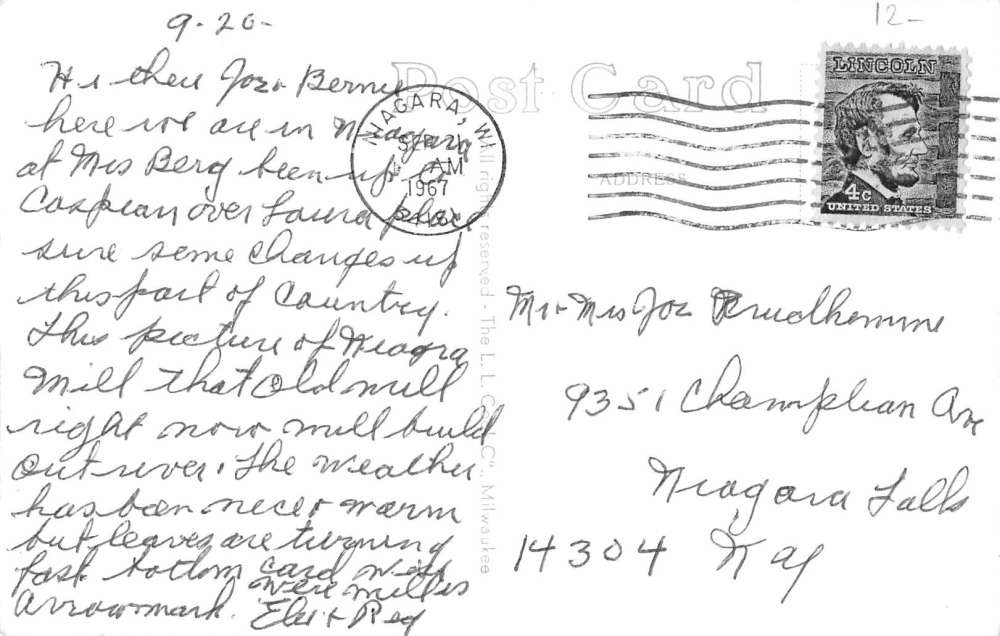 9-20-
12-
Hi there Joe + Bernie
here we are in Niagara
at Mrs Berg been up to
Caspian over Laura place
sure some changes up
this part of Country.
This picture of Niagra
Mill that old mill
right now mill build
out river. The weather
has been nice & warm
but leaves are turning
fast. bottom card
where mill is
Arrow mark. + Reg
Post Card
ADDRESS
NIAGARA, WI
SEP
AM
1967
LINCOLN
4c
UNITED STATES
All rights reserved - The L. L. Co., Milwaukee
Mr + Mrs Joe Prudhomme
9351 Champlian Ave
Niagara Falls
14304 N Y